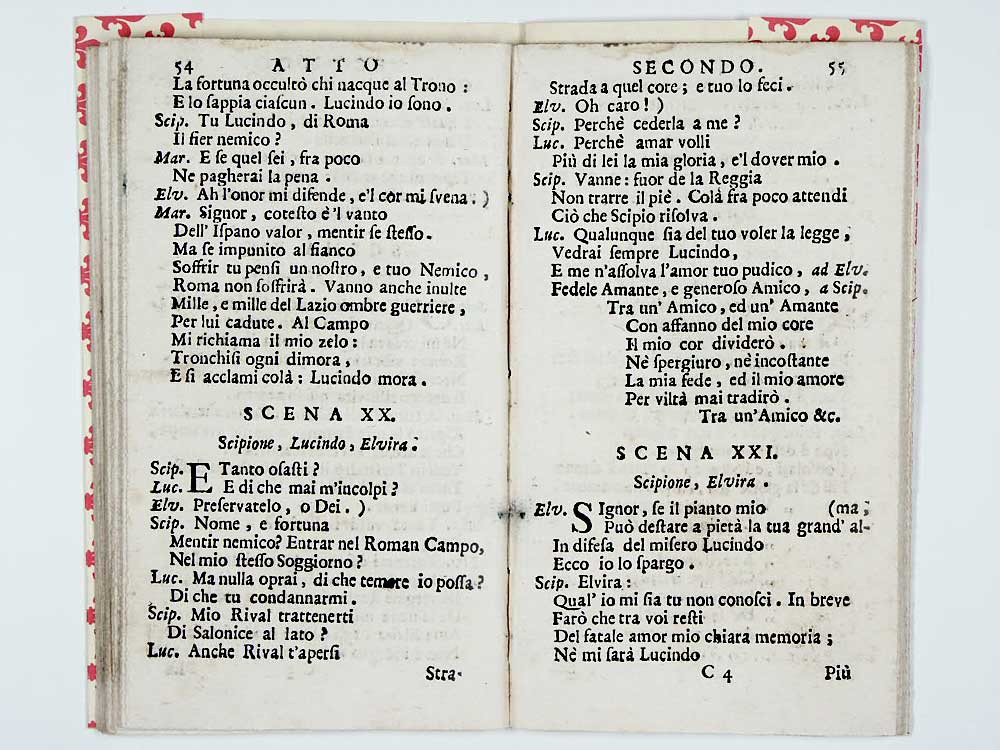 54 ATTO
La fortuna occultò chi nacque al Trono :
E lo ſappia ciaſcun. Lucindo io ſono.
Scip. Tu Lucindo, di Roma
Il fier nemico ?
Mar. E ſe quel ſei, fra poco
Ne pagherai la pena.
Elv. Ah l'onor mi difende, e'l cor mi ſvena. )
Mar. Signor, coteſto è'l vanto
Dell' Iſpano valor, mentir ſe ſteſſo.
Ma ſe impunito al fianco
Soffrir tu penſi un noſtro, e tuo Nemico,
Roma non ſoffrirà. Vanno anche inulte
Mille, e mille del Lazio ombre guerriere,
Per lui cadute. Al Campo
Mi richiama il mio zelo:
Tronchiſi ogni dimora,
E ſi acclami colà: Lucindo mora.
SCENA XX.
Scipione, Lucindo, Elvira.
Scip. E Tanto oſaſti?
Luc. E di che mai m'incolpi?
Elv. Preſervatelo, o Dei. )
Scip. Nome, e fortuna
Mentir nemico? Entrar nel Roman Campo,
Nel mio ſteſſo Soggiorno?
Luc. Ma nulla oprai, di che temere io poſſa?
Di che tu condannarmi.
Scip. Mio Rival trattenerti
Di Salonice al lato?
Luc. Anche Rival t'aperſi
Stra-
SECONDO. 55
Strada a quel core; e tuo lo feci.
Elv. Oh caro! )
Scip. Perchè cederla a me?
Luc. Perchè amar volli
Più di lei la mia gloria, e'l dover mio.
Scip. Vanne: fuor de la Reggia
Non trarre il piè. Colà fra poco attendi
Ciò che Scipio riſolva.
Luc. Qualunque ſia del tuo voler la legge,
Vedrai ſempre Lucindo,
E me n'aſſolva l'amor tuo pudico, ad Elv.
Fedele Amante, e generoſo Amico, a Scip.
Tra un' Amico, ed un' Amante
Con affanno del mio core
Il mio cor dividerò.
Nè ſpergiuro, nè incoſtante
La mia fede, ed il mio amore
Per viltà mai tradirò.
Tra un'Amico &c.
SCENA XXI.
Scipione, Elvira.
Elv. SIgnor, ſe il pianto mio (ma,
Può deſtare a pietà la tua grand' al-
In difeſa del miſero Lucindo
Ecco io lo ſpargo.
Scip. Elvira:
Qual' io mi ſia tu non conoſci. In breve
Farò che tra voi reſti
Del fatale amor mio chiara memoria;
Nè mi ſarà Lucindo
C 4 Più